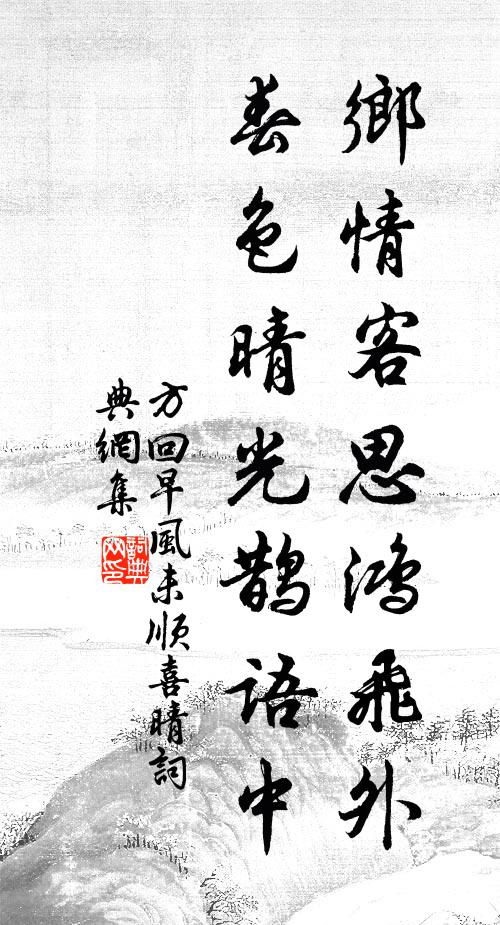 鄉情客思鴻飛外
春色晴光鵲語中
方回早風未順喜晴詞
典網集
詞典網印